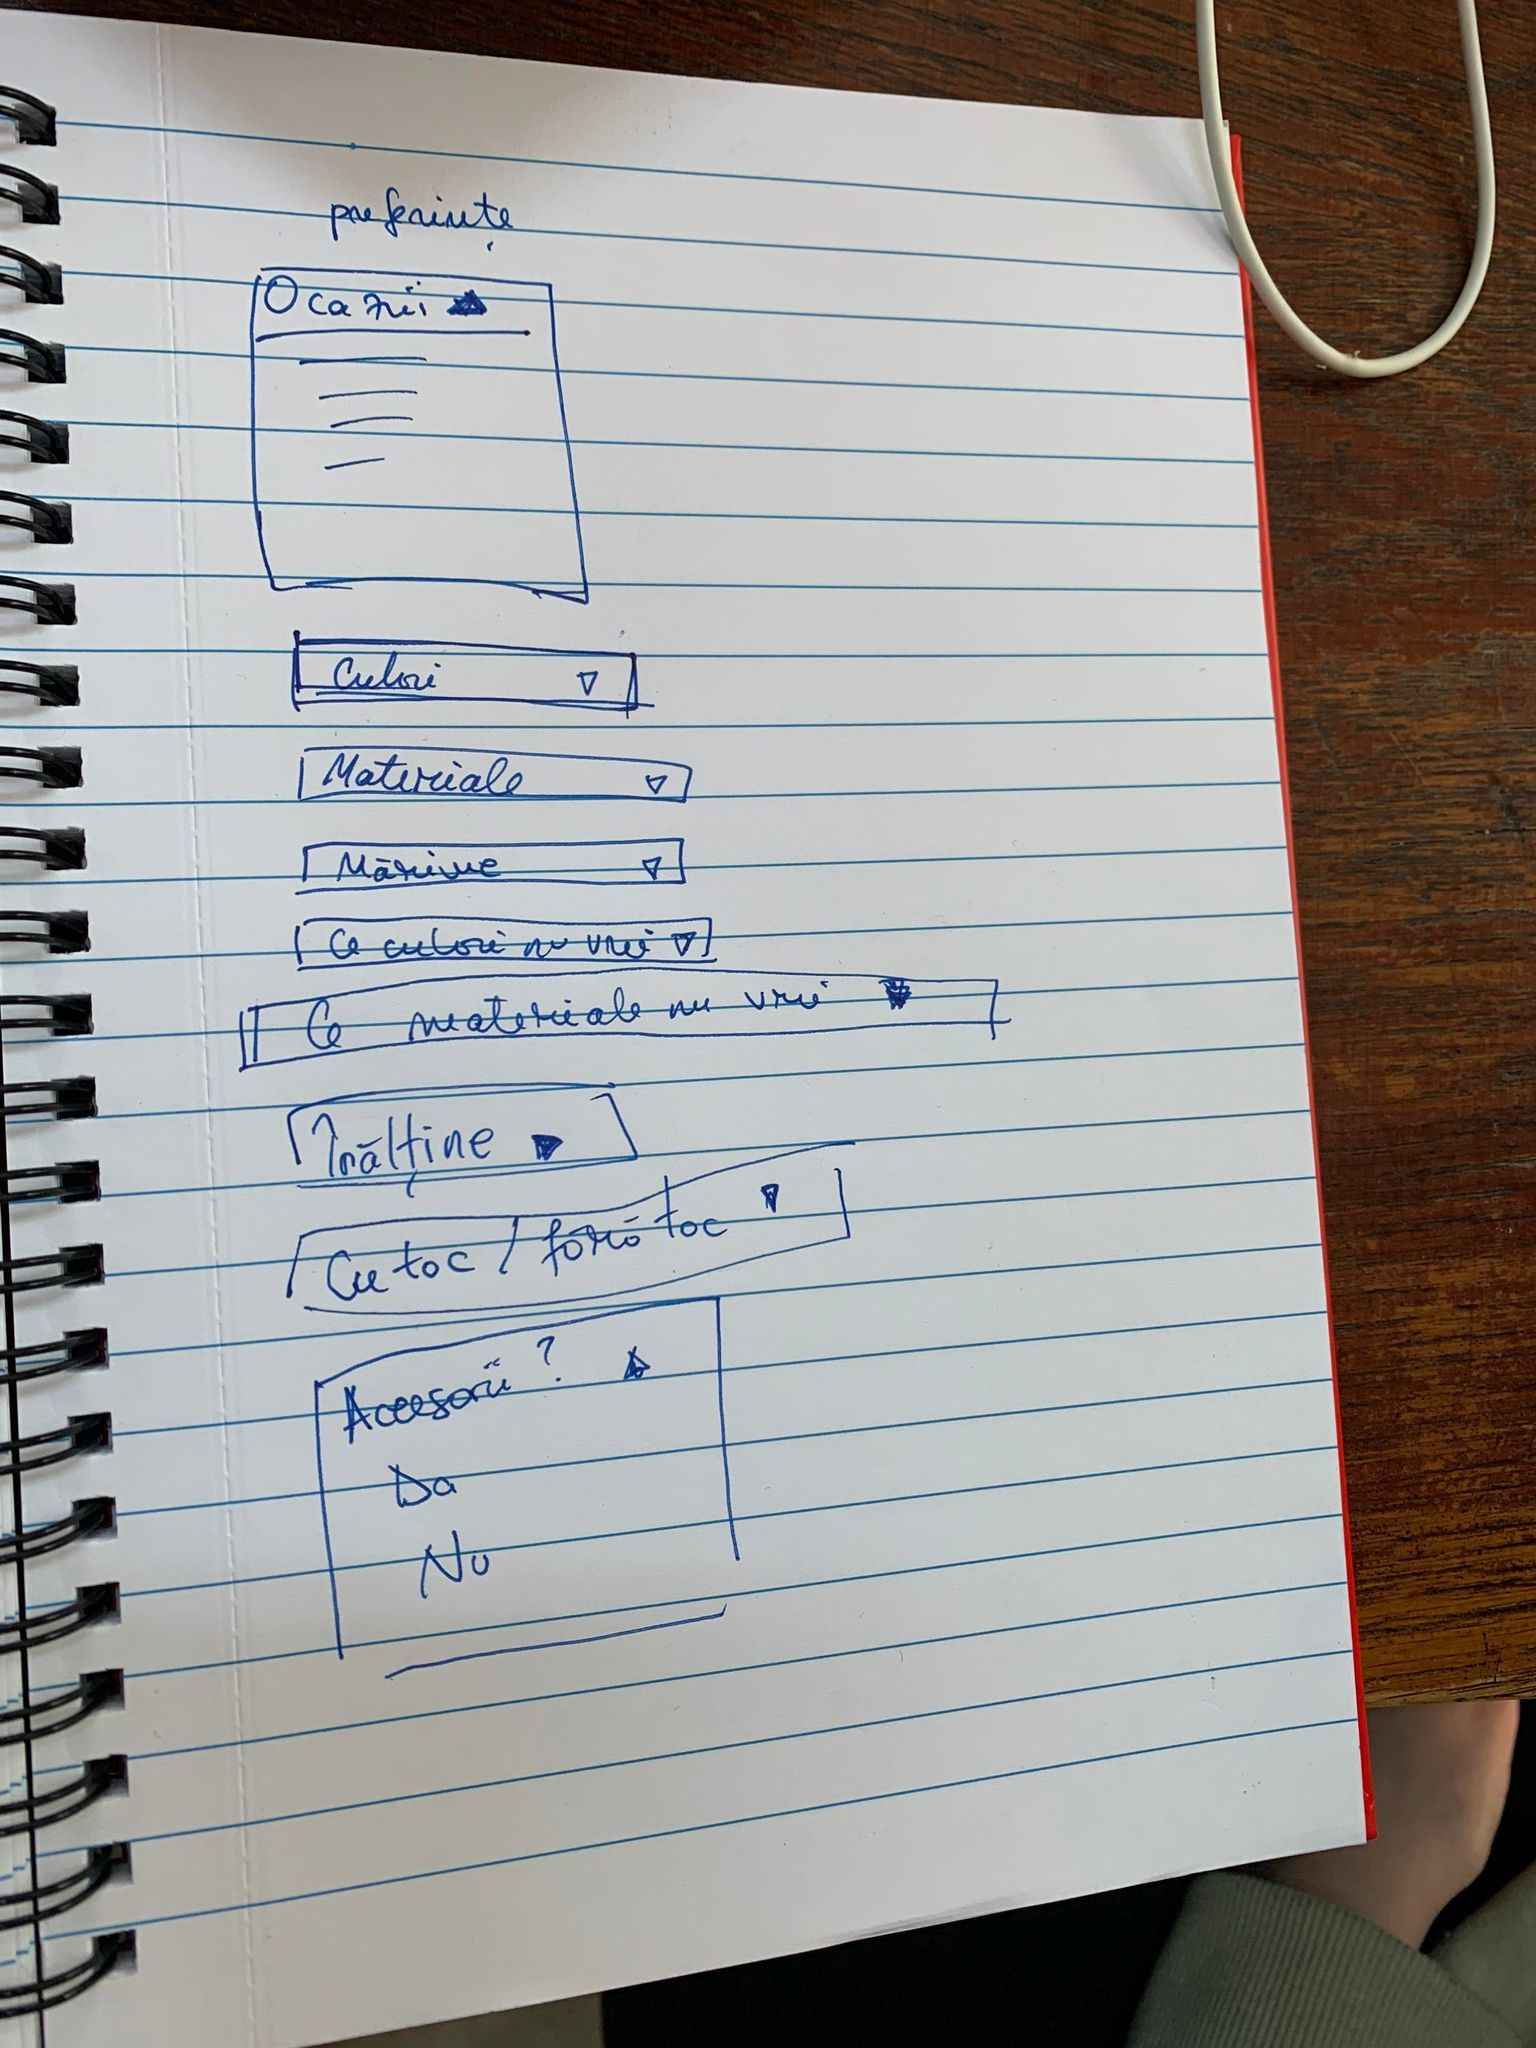 preferințe
Ocazii
Culori
Materiale
Mărime
Ce culori nu vrei
Ce materiale nu vrei
Înălține
Cu toc / fără toc
Accesorii ?
Da
Nu